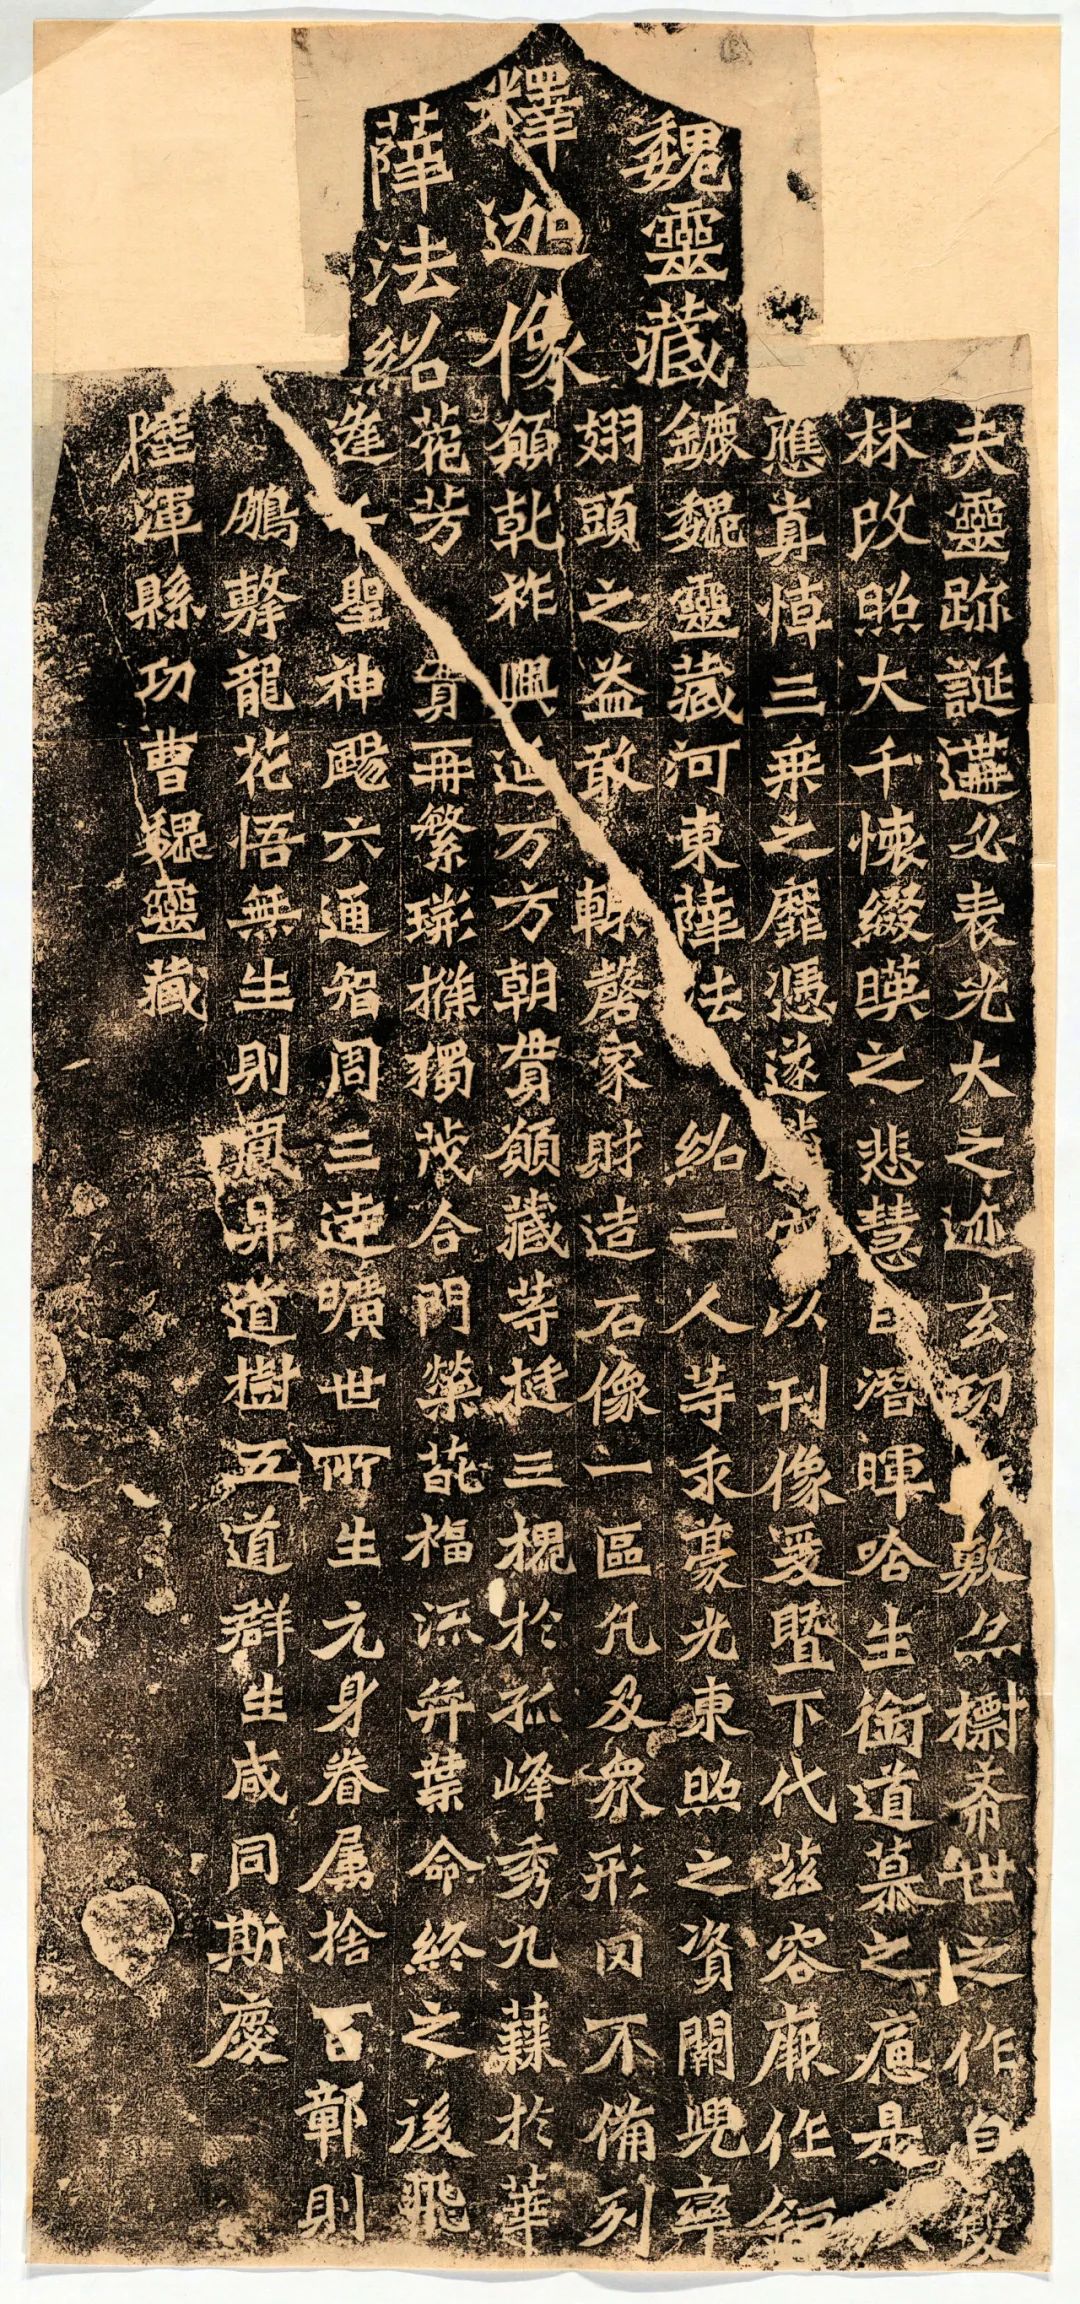 魏靈藏
釋迦像
薛法紹
夫靈跡誕遘必表光大之迹玄功敷亦標希世之作自雙
林改照大千懷綴暎之悲慧日潛暉唅生銜道慕之痛是
應真悼三乘之靡憑遂以刊像爰暨下代茲容厥作鉅
鏕魏靈藏河東薛法紹二人等求豪光東照之資闕兜率
翅頭之益敢輒罄家財造石像一區凡及眾形罔不備列
願乾祚興延万方朝貫願藏等挺三槐於孤峰秀九蕀於華
菀芳實再繁荊條獨茂合門榮葩福流弈葉命終之後飛
逢千聖神颺六通智周三達曠世所生元身眷屬捨百鄣則
鵬擊龍花悟無生則鳳昇道樹五道群生咸同斯慶
陸渾縣功曹魏靈藏